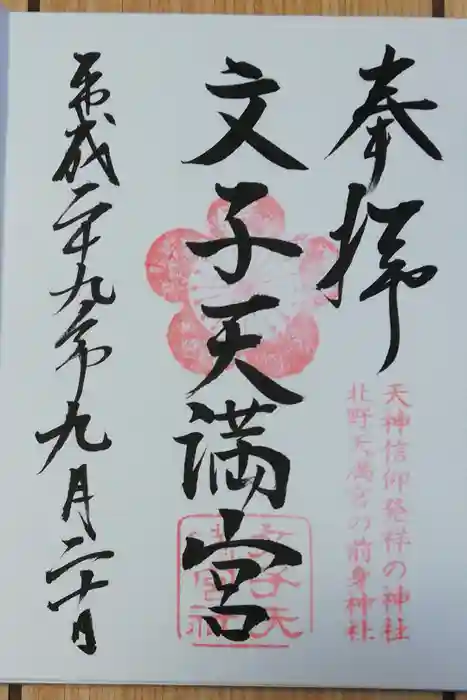 奉拝
天神信仰発祥の神社
北野天満宮の前身神社
文子天満宮
平成二十九年九月二十日